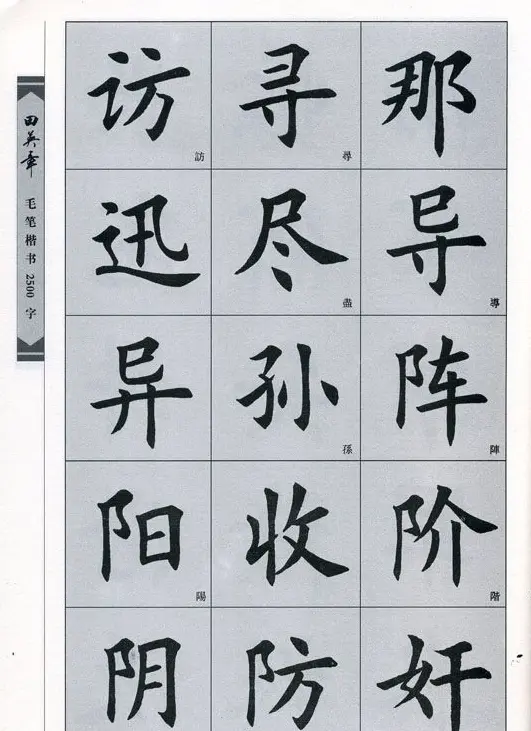 田英章 毛笔楷书 2500 字
访 訪 寻 尋 那
迅 尽 盡 导 導
异 孙 孫 阵 陣
阳 陽 收 阶 階
阴 防 奸